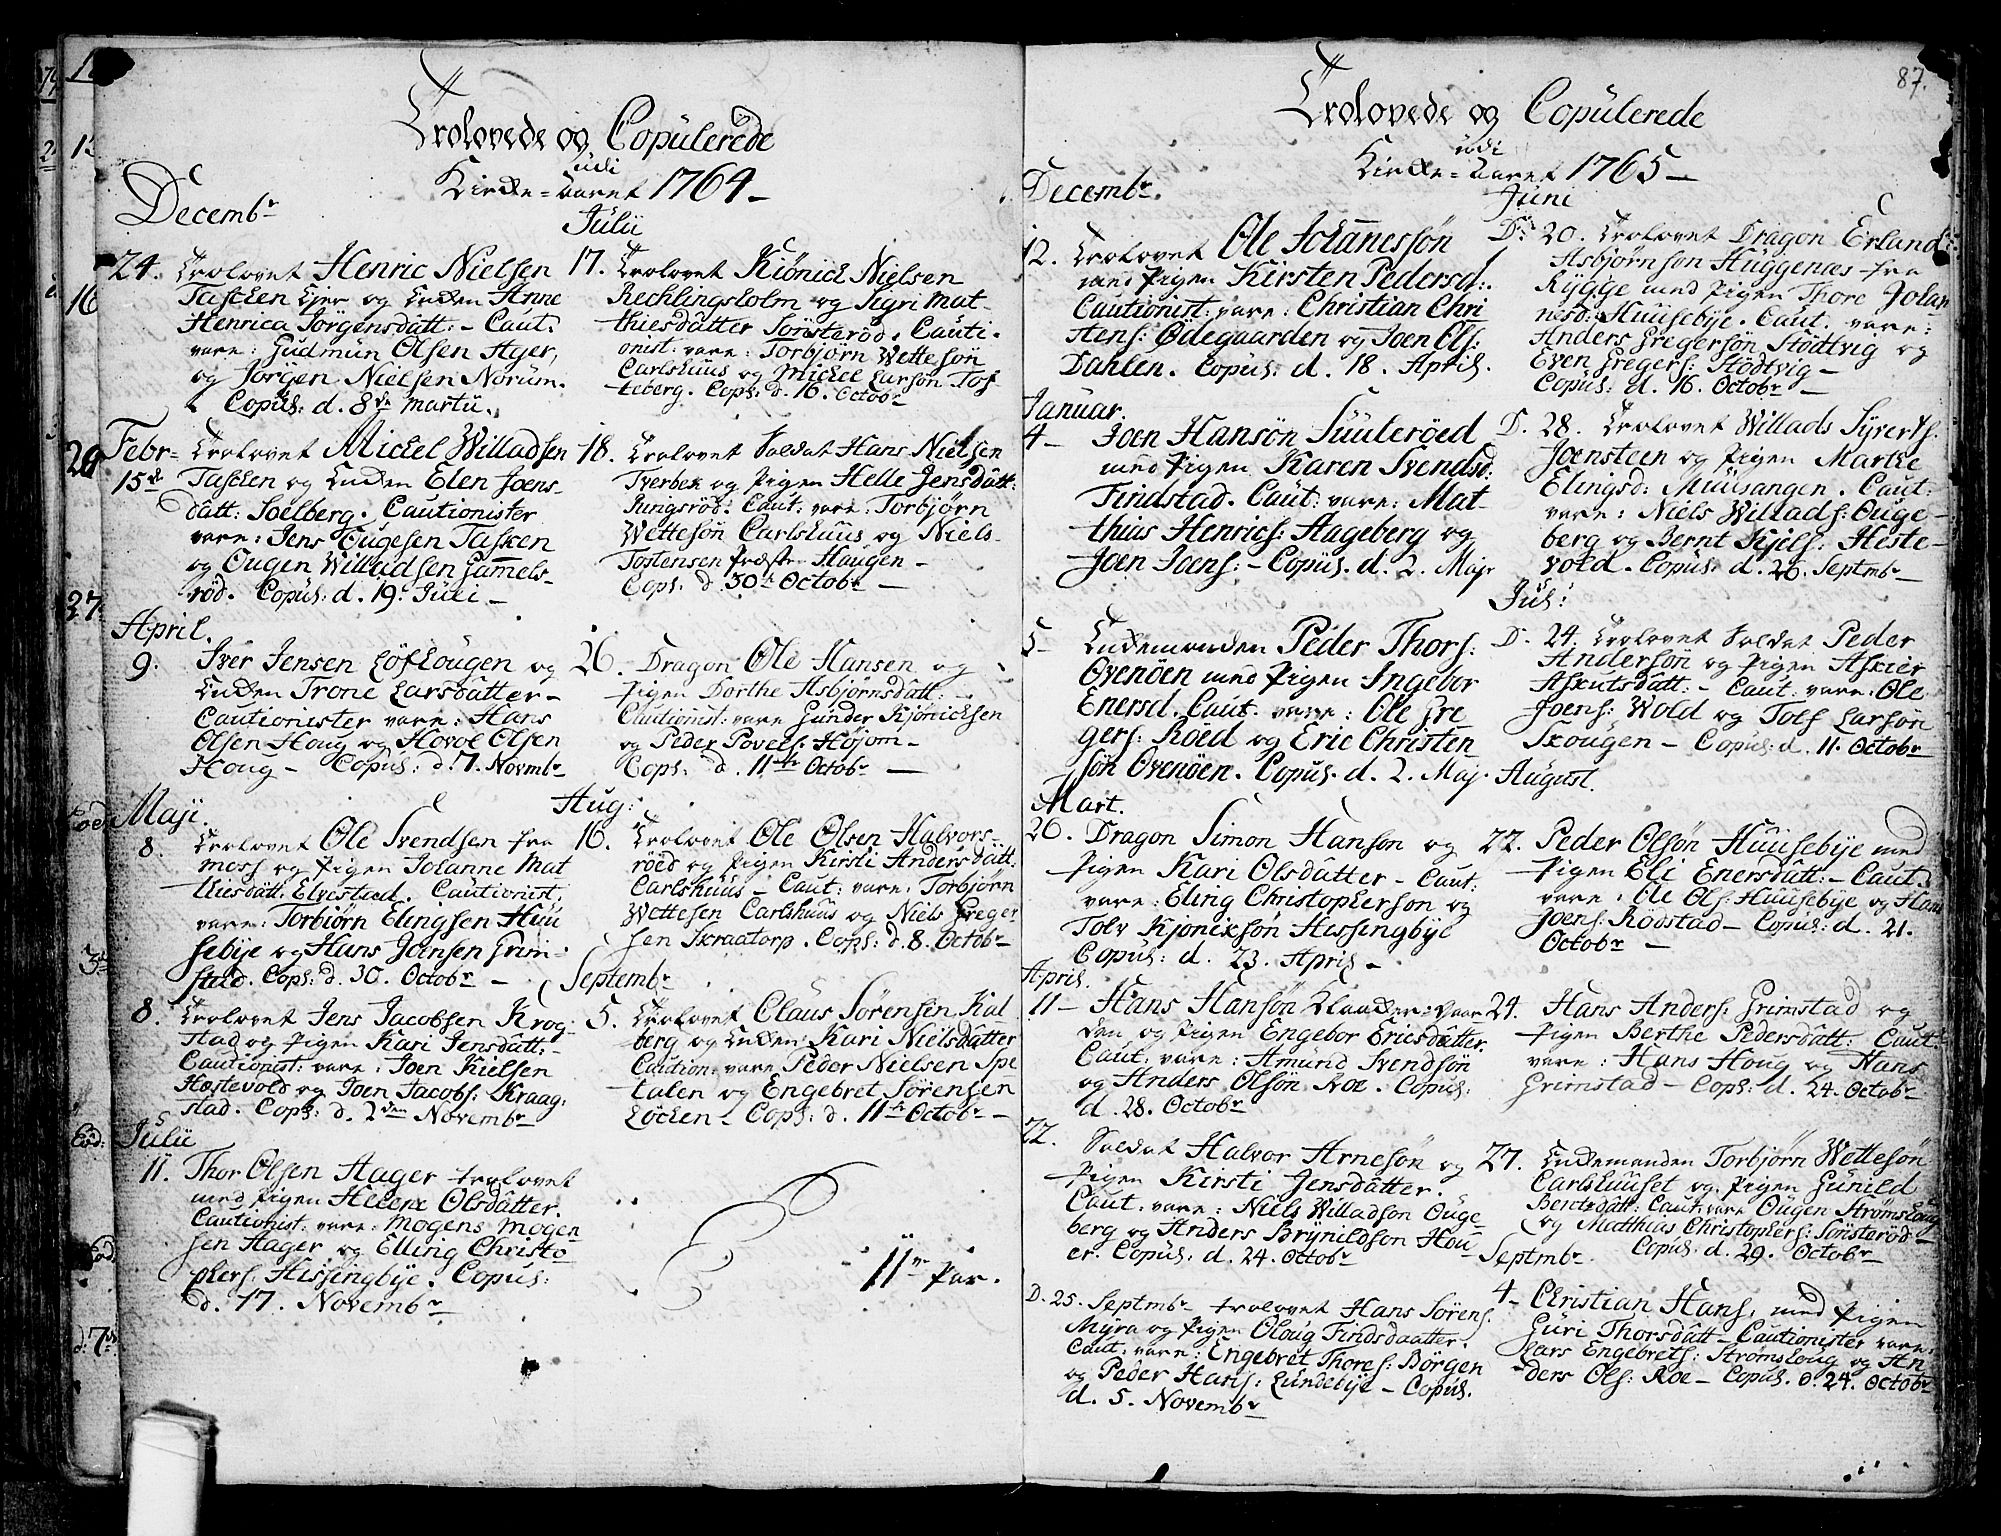 Trolovede og Copulerede
udi
Kirke-Aaret 1764
Decembr
24. Trolovet Henric Nielsen
Tasken Ejer og Enken Anne
Henrica Jörgensdatt: - Caut:
vare: Gudmun Olsen Ager,
og Jörgen Nielsen Norum.
Copul: d. 8de Martii.
Febr
15de Trolovet Mickel Willadsen
Tasken og Enken Elen Joens-
datt: Soelberg. Cautionister
vare: Jens Ougesen Tasken
og Ougen Willadsen Gamels-
röd. Copul: d. 19. Juli -
April.
9. Iver Jensen Löfhougen og
Enken Trone Larsdatter -
Cautionister vare: Hans
Olsen Houg og Hovol Olsen
Houg - Copul: d. 7. Novmbr
Maji.
8. Trolovet Ole Svendsen fra
Moss og Pigen Johanne Mat
thiesdatt: Elvestad. Cautionist:
vare: Torbiörn Elingsen Huu
sebye og Hans Jensen Grim-
stad. Cops: d. 30. Octobr -
8. Trolovet Jens Jacobsen Krog-
stad og Pigen Kari Jensdatt: -
Cautionist: vare: Joen Kielsen
Hæstevold og Joen Jacobs: Kraag-
stad. Cops: d. 2den Novembr
Julii
11. Thor Olsen Hager trolovet
med Pigen Helene Olsdatter.
Cautionist: vare: Mogens Mogen
sen Hager og Elling Christo
phers: Hissingbye. Copul:
d. 17. Novembr
Julii
17. Trolovet Kiönick Nielsen
Rechlingsholm og Sigri Mat-
thiesdatter Sönsteröd. Cauti-
onist: vare: Torbjörn Wettesön
Carlshuus og Mickel Larsön Tof
teberg. Cops: d. 16. Octobr
18. Trolovet Soldat Hans Nielsen
Tverbek og Pigen Helle Jensdatt:
Ringsröd: Caut: vare: Torbjörn
Wettesön Carlshuus og Niels
Tostensen Præste Haugen -
Cops: d. 30te Octobr -
26. Dragon Ole Hansen og
Pigen Dorthe Asbjörnsdatt: -
Cautionist: vare Gunder Kjönicksen
og Peder Povels: Höjom -
Cops: d. 11te Octobr -
Aug:
16. Trolovet Ole Olsen Halvors-
röed og Pigen Kirsti Andersdatt.
Carlshuus - Caut: vare: Torbjörn
Wettesen Carlshuus og Niels Greger
sen Skraatorp. Cops: d. 8. Octobr
Septembr
5. Trolovet Claus Sörensen Kal
berg og Enken Kari Nielsdatter
Caution: vare Peder Nielsen Spe
talen og Engebret Sörensen
Löcken - Cops: d. 11te Octobr -
11 Par.
87.
Trolovede og Copulerede
udi
Kirke-Aaret 1765
Decembr.
12. Trolovet Ole Johannessön
med Pigen Kirsten Pedersd:
Cautionist: vare: Christian Chri
stens: Ødegaarden og Joen Ols:
Dahlen. Copul: d. 18. April.
Januar.
4 - Joen Hansön Suuleröed
med Pigen Karen Svendsd:
Findstad. Caut: vare: Mat-
thius Henrics: Hageberg og
Joen Joens: - Copul. d. 2. Maj.
5 - Enkemanden Peder Thors:
Ovenöen med Pigen Ingebor
Enersd. Caut. vare: Ole Gre
gers: Roed og Eric Christen
sön Ovenöen. Copul. d. 2. Maj.
Mart.
26. Dragon Simon Hansön og
Pigen Kari Olsdatter - Caut:
vare: Eling Christophersön og
Tolv Kjönixsön Hissingbye
Copul: d. 23. April -
April.
11 - Hans Hansön
den og Pigen Engebor Ericsdatter.
Caut: vare: Amund Svendsön
og Anders Olsön Roe. Copul:
d. 28. Octobr
22. Soldat Halvor Arnesön og
Pigen Kirsti Jensdatter.
Caut. vare: Niels Willadsön Ouge-
berg og Anders Brynildsön Hou
er. Copul: d. 24. Octobr
D. 25. Septmbr trolovet Hans Sörens.
Myra og Pigen Oloug Findsdaatter.
Caut. vare: Engebret Thores: Börgen
og Peder Hans: Lundebye - Copul.
d. 5. Novembr
Juni
D. 20. Trolovet Dragon Erland
Asbjörnsön Huggenæs fra
Rygge med Pigen Thore Johan
nesd: Huusebye. Caut. vare:
Anders Gregersön Stödtvig og
Even Gregers: Stödtvig -
Copul: d. 16. Octobr -
D. 28. Trolovet Willads Syverts:
Joensteen og Pigen Marthe
Elingsd: Muusangen. Caut:
vare: Niels Willads: Ouge-
berg og Bernt Kjels: Heste-
vold. Copul: d. 26. Septmbr -
Jul:
D. 24. Trolovet Soldat Peder
Andersön og Pigen Askier
Askutsdatt: - Caut: vare: Ole
Joens: Wold og Tolf Larsön
Skougen - Copul: d. 11. Octobr
August.
22. Peder Olsön Huusebye med
Pigen Eli Enersdatt: - Caut.
vare: Ole Ols: Huusebye og Hans
Joens: Rödstad - Copul: d. 21.
Octobr -
24. Hans Anders: Grimstad og
Pigen Berthe Pedersdatt: Caut:
vare: Hans Houg og Hans
Grimstad - Cops: d. 24. Octobr
27. Enkemanden Torbjörn Wettesön
Carlshuuset og Pigen Gunild
Bentsdatt: Caut: vare Ougen Strömshoug
og Matthias Christophers: Sönsteröd -
Copul: d. 29. Octobr
Septmbr.
4 - Christian Hans: med Pigen
Guri Thorsdatt - Cautionister vare:
Lars Engebrets: Strömshoug og An
ders Ols: Roe - Copul. d. 24. Octobr